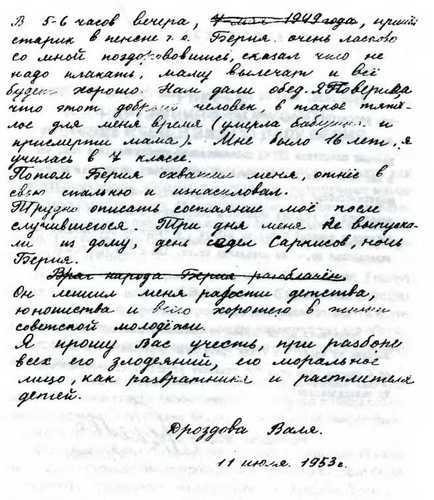 В 5-6 часов вечера, 7 мая 1949 года, пришёл
старик в пенсне т.е. Берия. очень ласково
со мной поздорововшись, сказал что не
надо плакать, маму вылечат и всё
будет хорошо. Нам дали обед. Я Поверила
что этот добрый человек, в такое тяжё-
лое для меня время (умерла бабушка и
присмерти мама). Мне было 16 лет, я
училась в 7 классе.
Потом Берия схватил меня, отнёс в
свою спальню и изнасиловал.
Трудно описать состояние моё после
случившегося. Три дня меня не выпуска-
ли из дому, день сидел Саркисов, ночь
Берия.
Враг народа Берия разоблачён.
Он лишил меня радости детства,
юношества и всего хорошего в жизни
советской молодёжи.
Я прошу Вас учесть, при разборе
всех его злодеяний, его моральное
лицо, как развратника и растлителя
детей.
Дроздова Валя.
11 июля 1953 г.